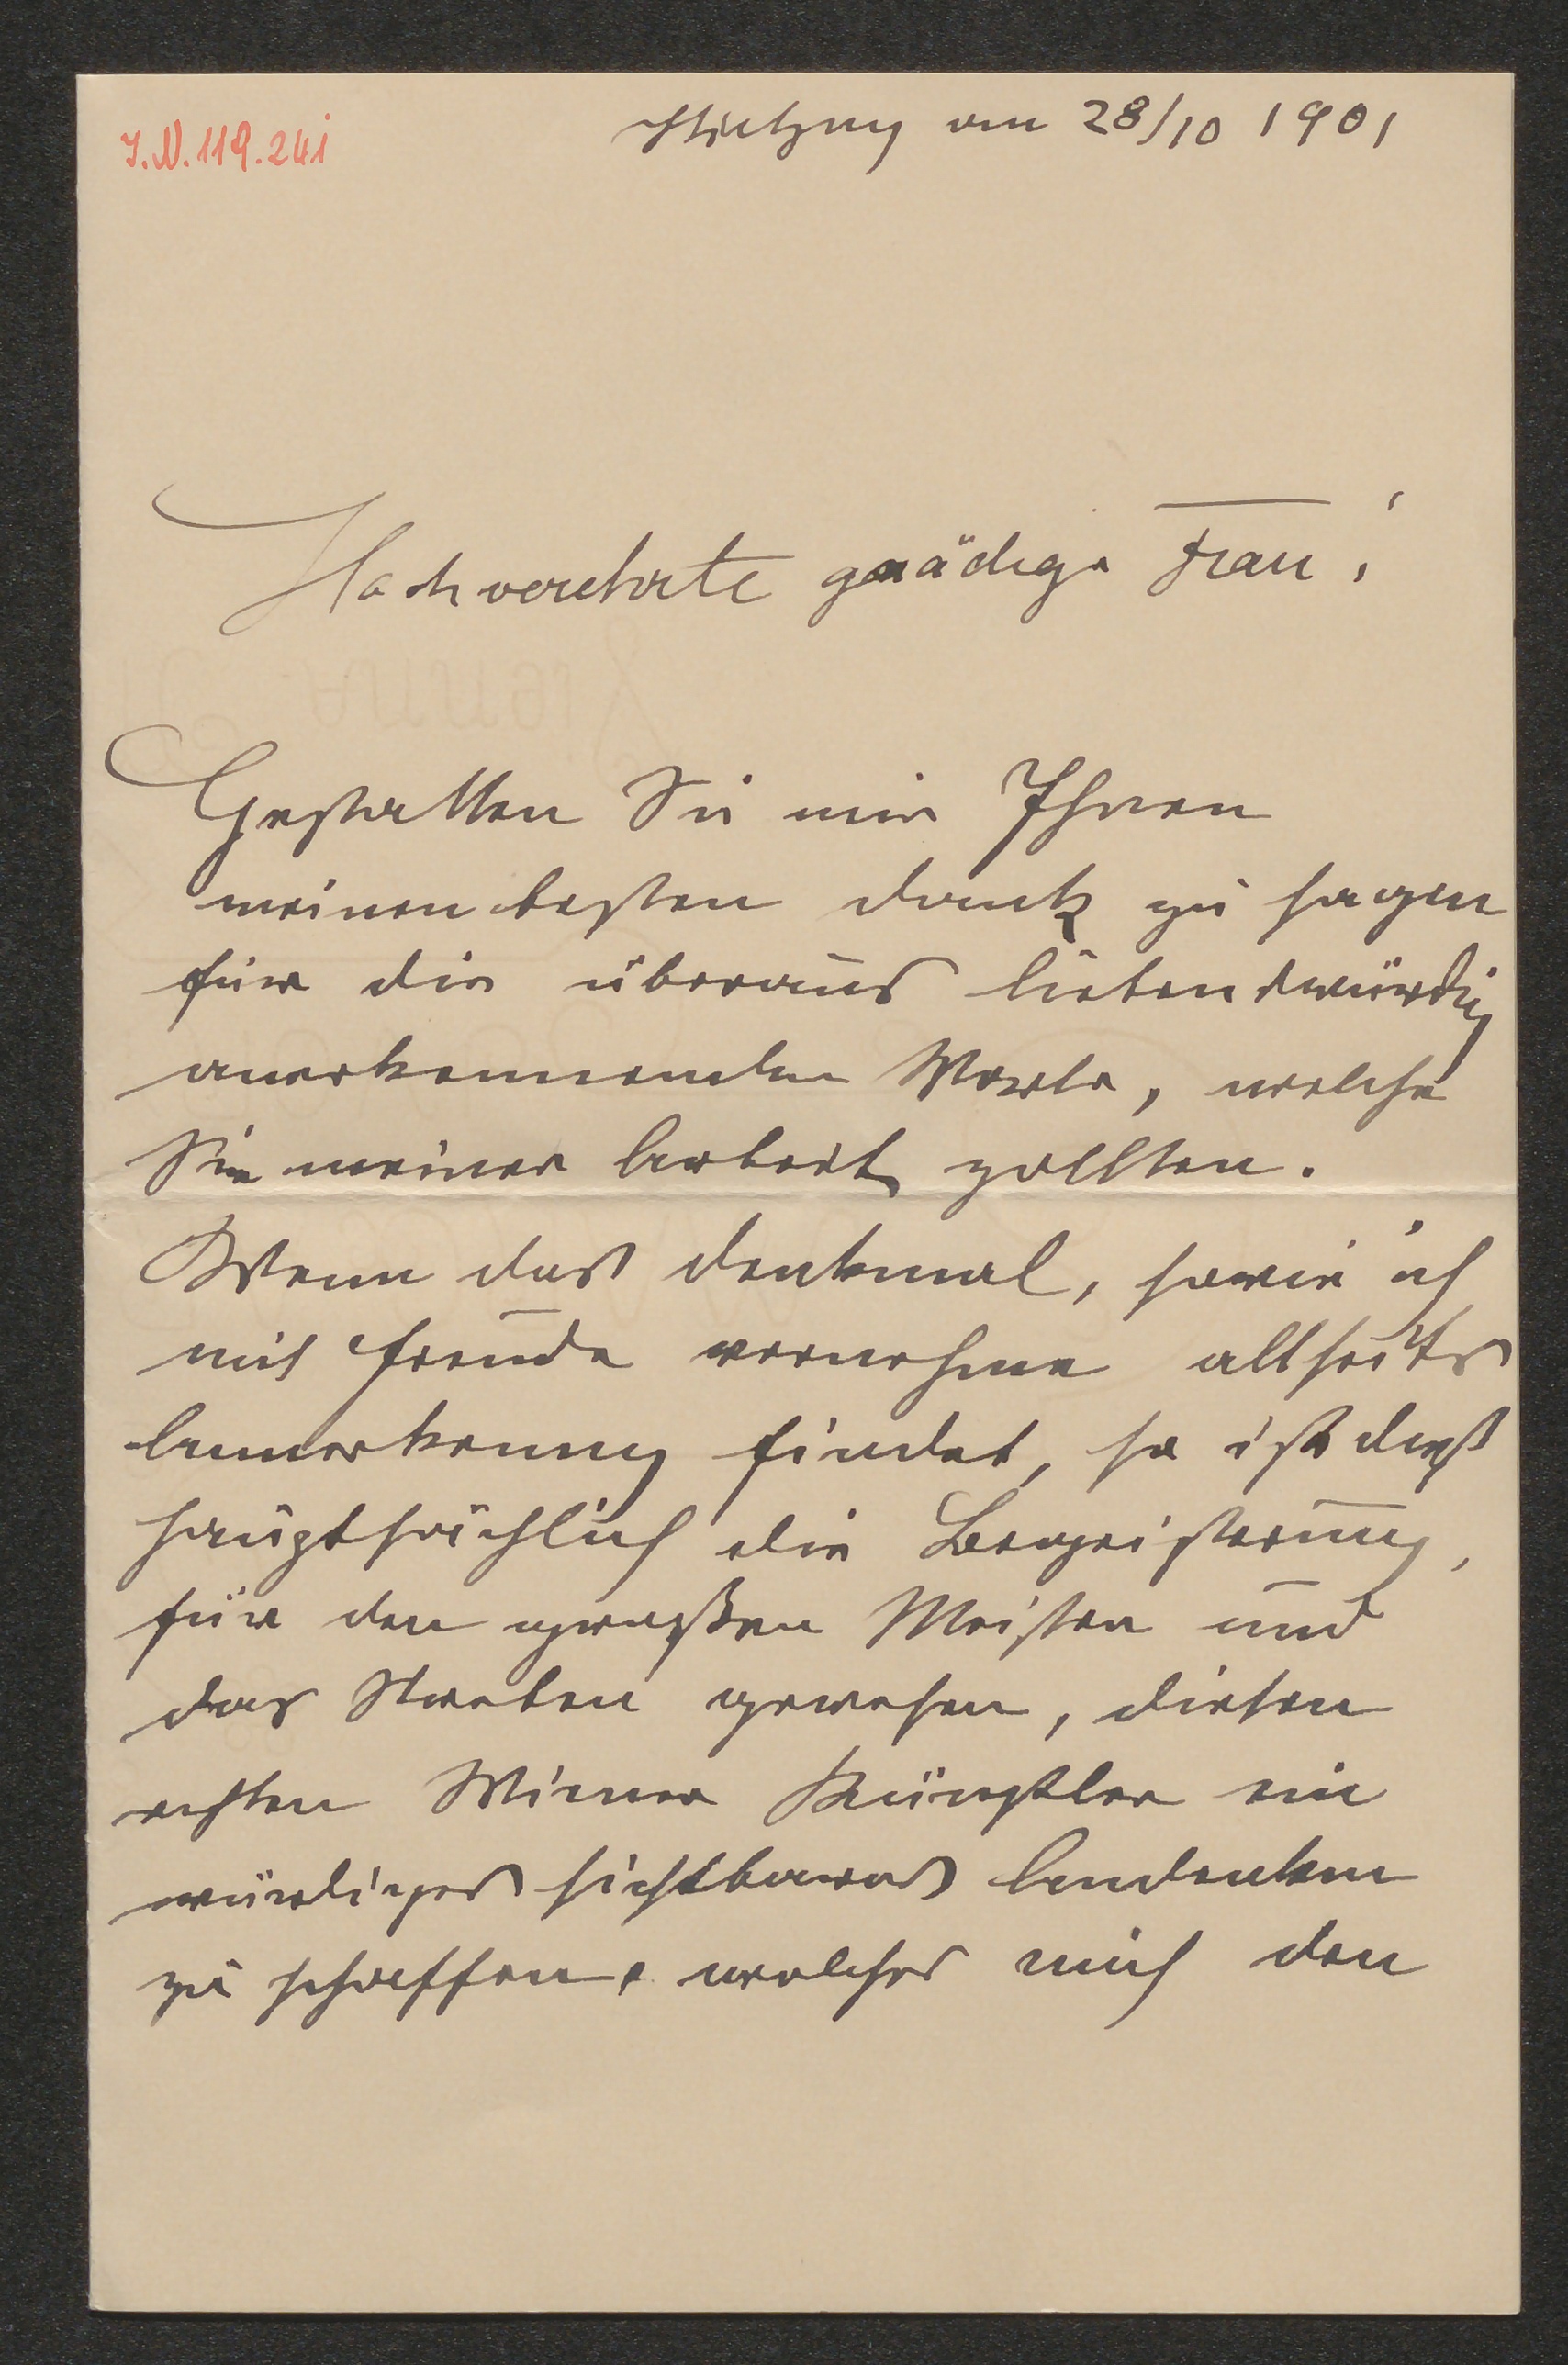 I.N. 119.241
Hietzing am 28/10 1901
Hochverehrte gnädige Frau!
Gestatten Sie mir Ihnen
meinen besten Dank zu sagen
für die überaus liebenswürdig
anerkennenden Worte, welche
Sie meiner Arbeit zollten.
Wenn das Denkmal, sowie ich
mit Freude vernehme allseits
Anerkennung findet, so ist dieß
hauptsächlich die Begeisterung,
für den großen Meister und
das Streben gewesen, diesen
echten Wiener Künstler ein
würdiges sichtbares Andenken
zu schaffen, welches mich den